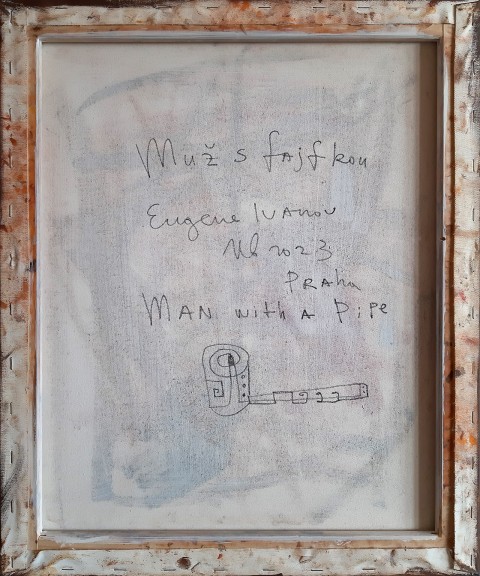 Muž s fajfkou
Eugene Ivanov
2023
Praha
MAN with A Pipe